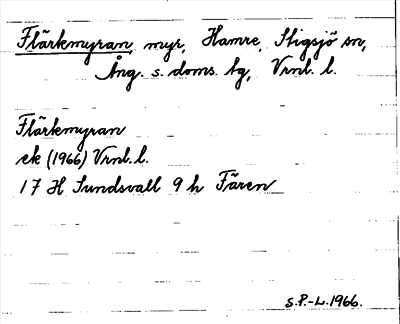 Flärkmyran, myr, Hamre, Stigsjö sn,
Ång. s. doms. tg, Vrnl. l.
Flärkmyran
ek (1966) Vrnl. l.
17 H Sundsvall 9 h Fären
S.P.-L. 1966.